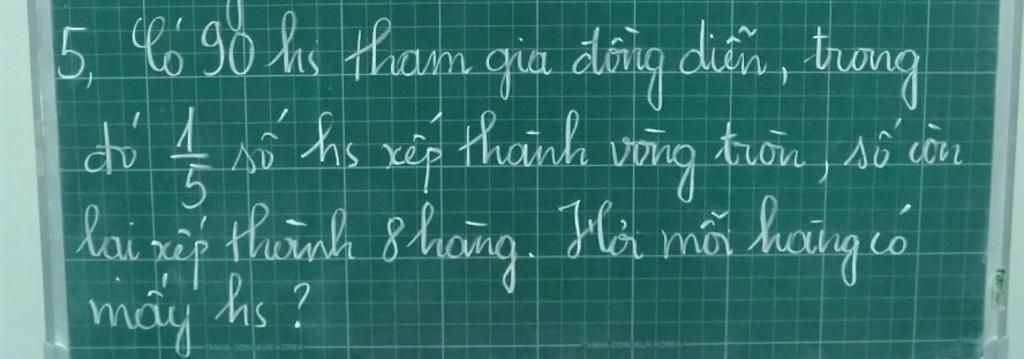 5, Có 90 hs tham gia đồng diễn, trong
đó 1/5 số hs xếp thành vòng tròn, số còn
lại xếp thành 8 hàng. Hỏi mỗi hàng có
mấy hs?
TANHA DONGKUK-KOREA TANHA DONGKUK-KOREA